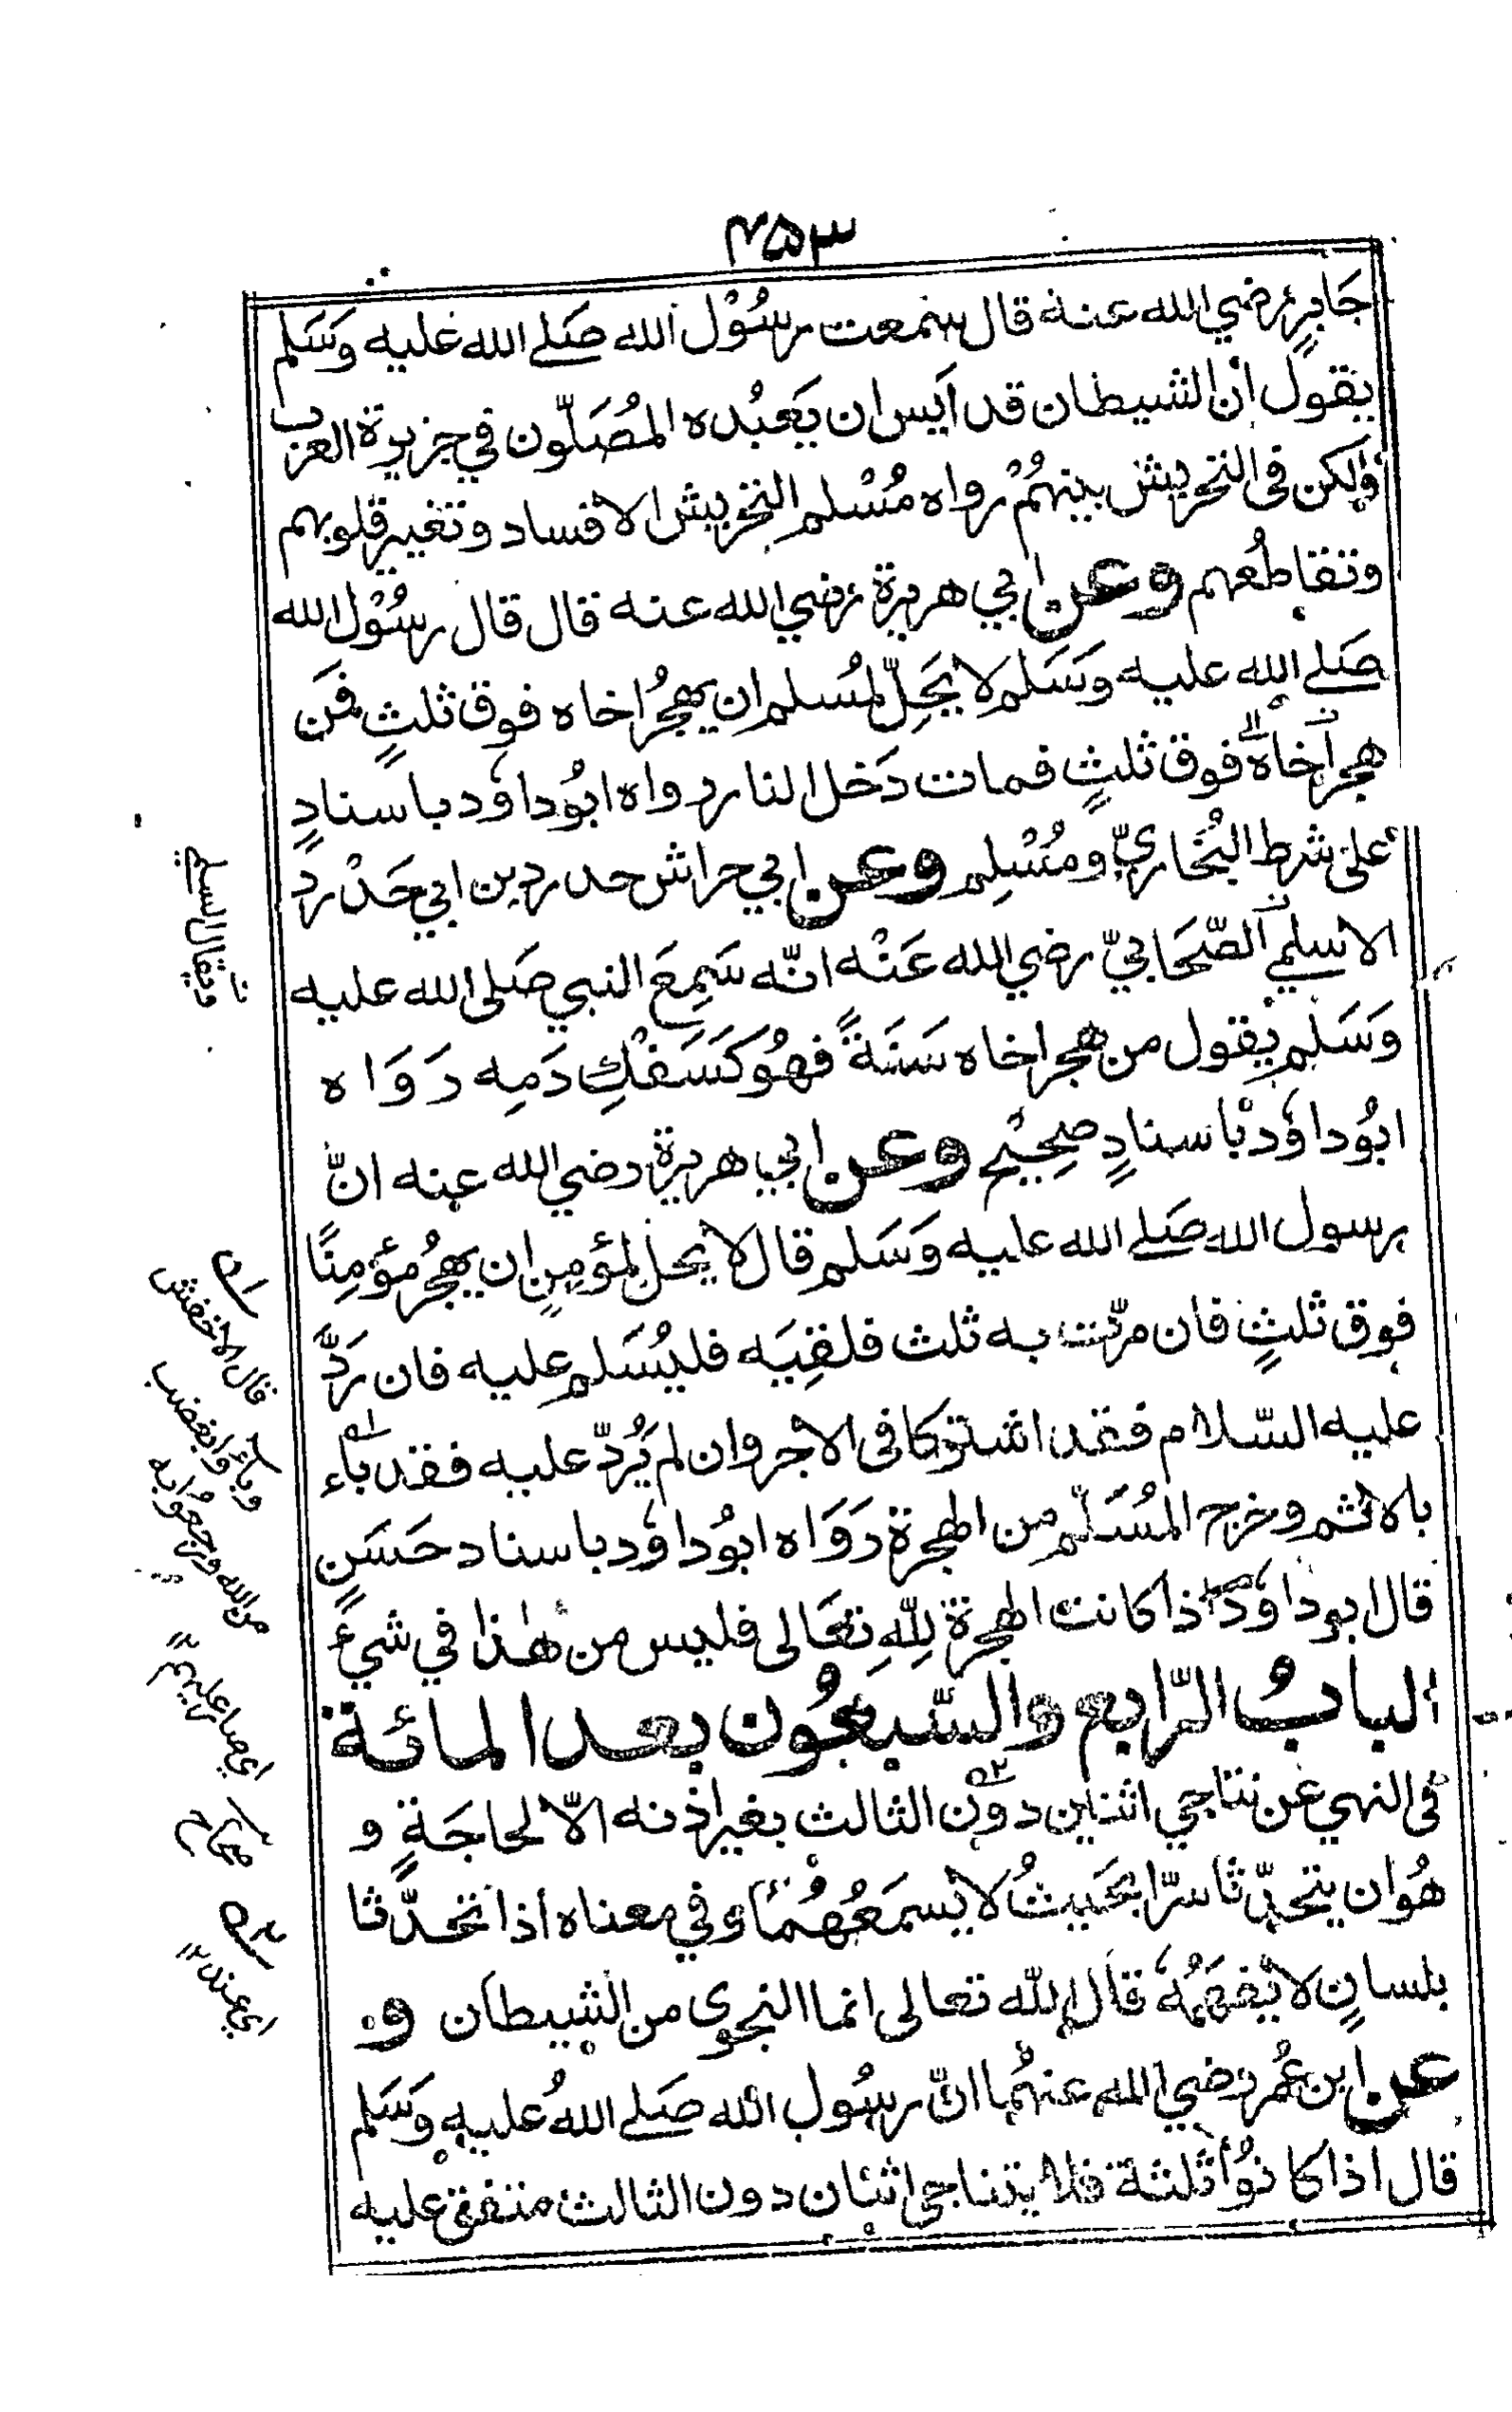 ٤٥٣
جَابِرٍ رضي الله عنه قال سمعت رسُوْل الله صَلے الله عليه وَسَلم
يقول ان الشيطان قد اَيس ان يَعبُده المُصَلّون في جزيرة العرب
ولكن فى التحريش بينهُمْ رواه مُسْلم التحريش الافساد وتغير قلوبهم
وتقاطُعهم وعن ابي هريرة رضي الله عنه قال قال رسُوْل الله
صَلے الله عليه وَسَلم لا يَحِلّ لمُسلم ان يهجُر اخاه فوق ثلثٍ فمَن
هجر اخاه فوق ثلثٍ فمات دَخل النار رواه ابُوداوٗد باسنادٍ
على شرط البُخاريّ ومُسْلِم وعن ابي حراش حدرد بن ابي حَدْرد
الاسلمي الصّحَابيّ رضي الله عَنْه انّه سَمِعَ النبي صَلى الله عليه
وَسَلم يقول من هجر اخاه سَنَةً فهُو كَسَفْكِ دَمِه رَوَاه
ابُوداوٗد باسنادٍ صحِيْح وعن ابي هريرة رضي الله عنه انّ
رسول الله صَلے الله عليه وَسَلم قال لا يحل لمؤمِنٍ ان يهجُر مؤمِنًا
فوق ثلثٍ فان مرّت به ثلث فلقِيَه فليُسَلم عليه فان رَدَّ
عليه السّلام فقد اشتركا فى الاجر وان لم يَرُدّ عليه فقد باء
بالاثم وخرج المُسَلّم من الهجرة رَوَاه ابُوداوٗد باسناد حَسَنٍ
قال ابوداوٗد اذا كانت الهجرة لِلّهِ تعَالى فليس من هٰذا في شيءٍ
البابُ الرّابع والسّبعُون بعد المائة
فى النهي عن تناجي اثنين دون الثالث بغير اذنه الّا لحاجَةٍ و
هُوان يتحدّثا سرّا بحَيثُ لا يسمَعُهُمَا وفي معناه اذا تحدَّثا
بلسانٍ لا يَفهَمُهٗ قال الله تعالى انما النجوى من الشيطان و
عن ابن عُمر رضي الله عنهُما انّ رسُول الله صَلے اللهُ عليه وَسَلم
قال اذا كانوُا ثلثة فلا يتناجى اثنان دون الثالث متفق عليه
ويقال السلمي
قال الاخفش
وباءٗوا بغضب
من الله ورجعوا به
اي صار عليهم